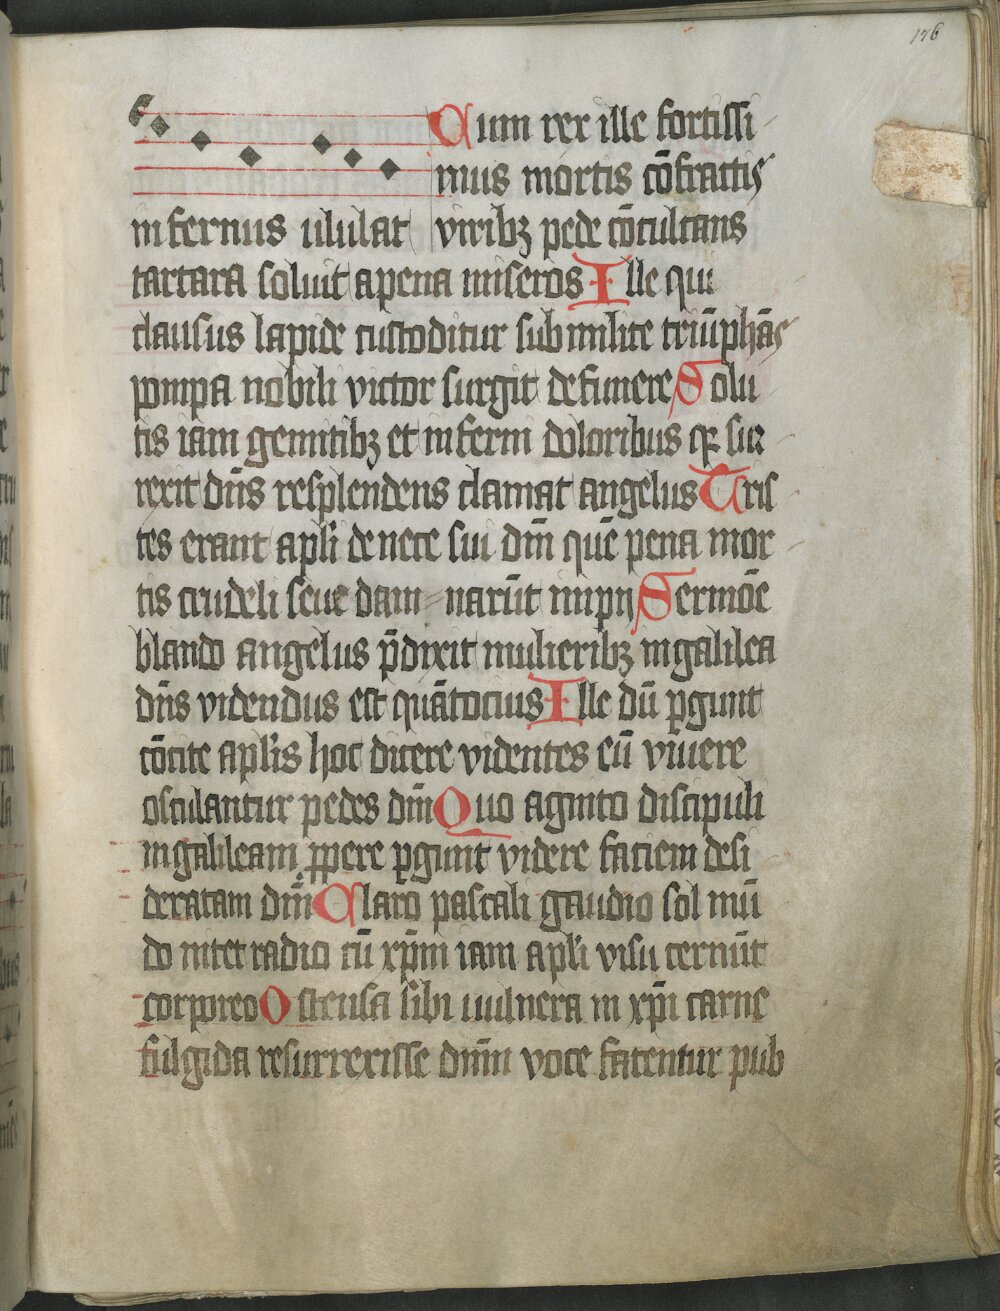 176
Cum rex ille fortissi
mus mortis cōfractis
infernus ululat viribꝫ pede cōculcans
tartara soluit apena miseros Ille qui
clausus lapide custoditur sub milite triūphās
pompa nobili victor surgit defunere Solu
tis iam gemitibꝫ et inferni doloribus qꝛ sur
rexit dn̄s resplendens clamat angelus Tris
tes erant apl̄i denece sui dn̄i quē pena mor
tis crudeli seue dam narūt impij Sermōe
blando angelus p̄dixit mulieribꝫ ingalilea
dn̄s videndus est quātocius Ille dū ꝑgunt
cōcite apl̄is hoc dicere videntes eū viuere
osculantur pedes dn̄i Quo agnito discipuli
ingalileam ꝓpere ꝑgunt videre faciem desi
deratam dn̄i Claro pascali gaudio sol mū
do nitet radio cū xp̄m iam apl̄i visu cernūt
corporeo Ostensa sibi uulnera in xp̄i carne
fulgida resurrexisse dn̄m voce fatentur pub